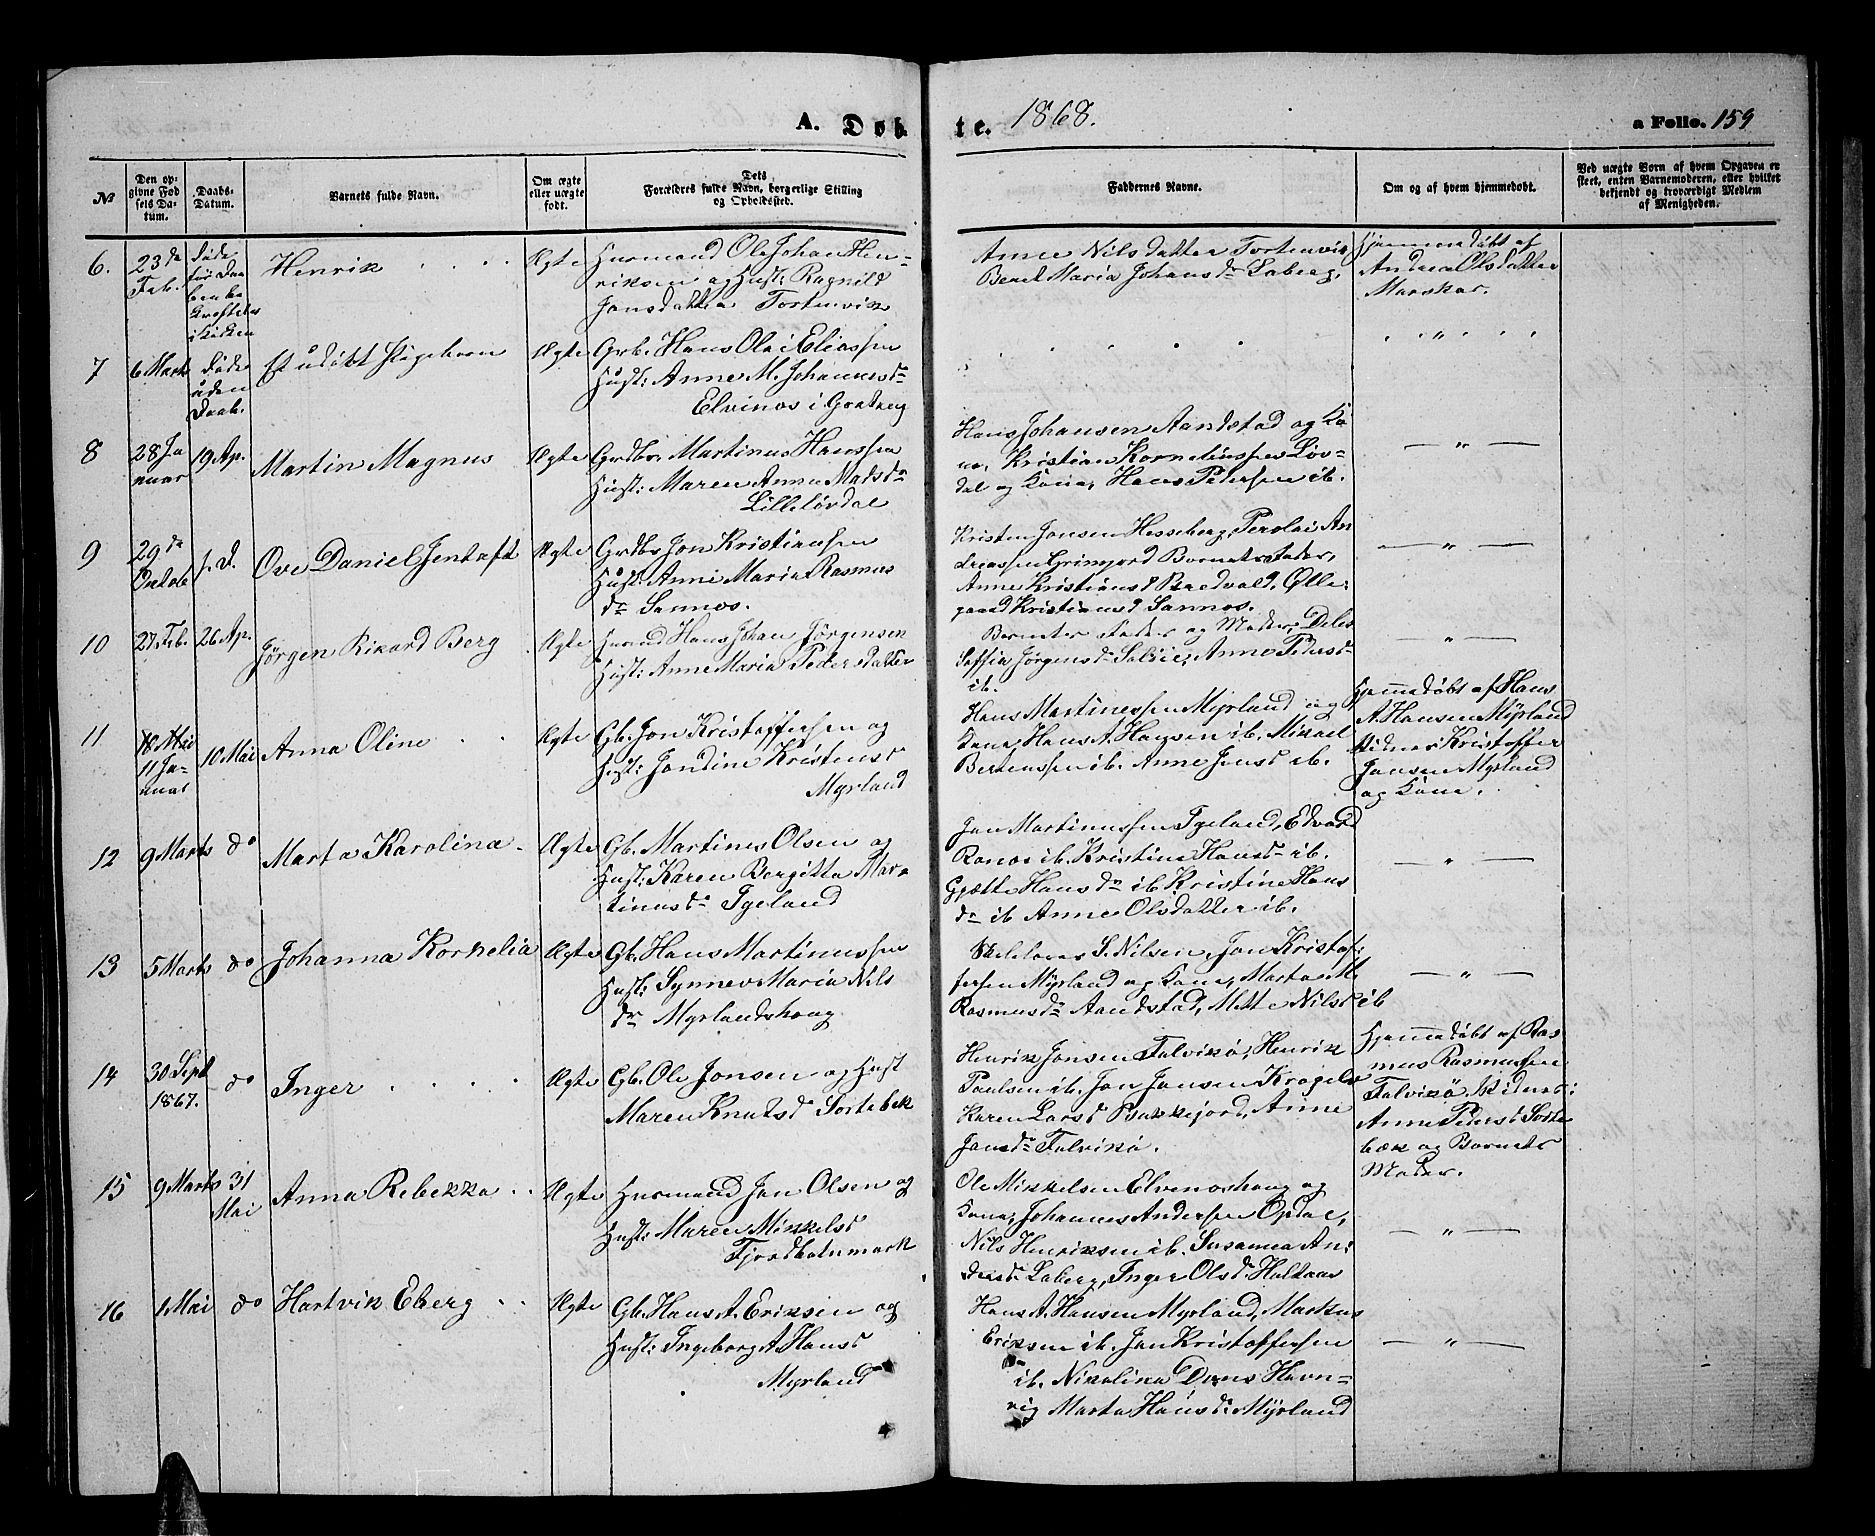 A. Døb
te. 1868.
a Folio. 159
№
Den op-
givne Fød
sels Da-
tum.
Daabs-
Datum.
Barnets fulde Navn.
Om ægte
eller uægte
født.
Dets
Forældres fulde Navn, borgerlige Stilling
og Opholdssted.
Faddernes Navne.
Om og af hvem hjemmedøbt.
Ved uægte Børn af hvem Opgaven er
skeet, enten Barnemoderen, eller hvilket
bekjendt og troværdigt Medlem
af Menigheden.
6.
23de
Feb.
døde
før Daa
ben be
kræftedes
i Kirken
Henrik
Ægte
Husmand Ole Johan Hen-
riksen og Hust: Ragnild
Jonsdatter Tortenvik
Anne Nilsdatter Tortenvik
Beret Maria Johansdr Laberg,
Hjemmedøbt af
Andrea Olsdatter
Marskar.
7
6 Marts
døde
uden
Daab.
Et udøbt Pigebarn
Ægte
Grb. Hans Olai Eliassen
Hust: Anne M. Johannesdr
Elvenos i Gratang
"
8
28 Ja
nuar
19 Ap.
Martin Magnus
Ægte
Grdbr. Martinus Hanssen
Hust: Maren Anna Matsdr
Lilleløvdal
Hans Johansen Aandstad og Ko
ne, Kristian Korneliussen Løv-
dal og Kone, Hans Pedersen ib.
"
9
29de
Octob
s. D.
Ove Daniel Jentoft
Ægte
Grdbr Jon Kristiansen
Hust: Anne Maria Rasmus
dr Sannos.
Kristen Jonsen Hesseberg, Perolai An
dreassen Grimjord Barnets Fader,
Anne Kristiansd Bredvold, Olle-
gaard Kristiansd Sannos.
"
10
27 Feb.
26 Ap.
Jørgen Rikard Berg
Ægte
Husmd Hans Johan Jørgensen
Hust: Anne Maria Pedersdatter
Barnets Fader og Moder, Deles
Soffia Jørgensdr Salsie, Anne Pedersdr
ib.
"
11
18 Mai
11 Ja-
nuar
10 Mai
Anna Oline
Ægte
Gb. Jon Kristoffersen og
Hust: Jondine Kristensd
Myrland
Hans Martinessen Myrland og
Kone, Hans A. Hansen ib. Mikael
Berntssen ib. Anne Jensd ib.
Hjemmedøbt af Hans
A. Hansen Myrland
Vidner Kristoffer
Jonsen Myrland
og Kone.
12
9 Marts
do
Marta Karolina
Ægte
Gb. Martines Olsen og
Hust: Karen Bergitta Mar-
tinusdr Tyeland
Jon Martinussen Tyeland, Edvard
Ronos ib. Kristine Hansdr ib.
Gjætte Hansdr ib Kristine Hans
dr ib Anne Olsdatter ib.
"
13
5 Marts
do
Johanna Kornelia
Ægte
Gb. Hans Martinussen
Hust: Synnev Maria Nils
dr Myrlandshaug
Skolelærer S. Nilsen, Jon Kristof-
fersen Myrland og Kone, Marta M.
Rasmusdr Aandstad, Mette Nilsd ib
"
14
30 Sept
1867.
do
Inger
Ægte
Gb. Ole Jonsen og Hust
Maren Knutsd Sortebek
Henrik Jonsen Falvikø, Henrik
Paulsen ib. Jon Jonsen Krogelv
Karen Larsd Bakkejord, Anne
Jonsdr Falvikø.
Hjemmedøbt af Ras
mus Rasmussen
Falvikø, Vidner:
Anne Pedersd Sorte
bæk og Barnets
Moder.
15
9 Marts
31
Mai
Anna Rebekka
Ægte
Husmand Jon Olsen og
Hust: Maren Mikkelsd
Fjordbotnmark
Ole Mikkelsen Elvenoshaug og
Kone, Johannes Andersen Opdal,
Nils Henriksen ib. Susanna An-
dersdr Laberg, Inger Olsd
"
16
1 Mai
do
Hartvik Eberg
Ægte
Gb. Hans A. Eriksen og
Hust: Ingeborg A Hansd
Myrland
Hans A. Hansen Myrland, Markus
Eriksen ib. Jon Kristoffersen
ib. Nikolina Dans Havn-
vig Marta Hansdr Myrland
"